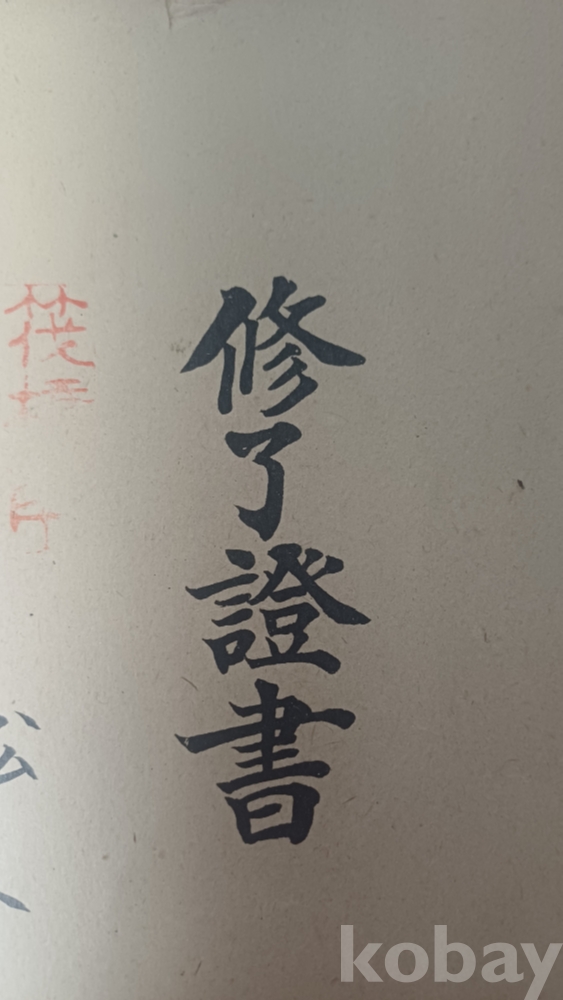 修了證書
kobay